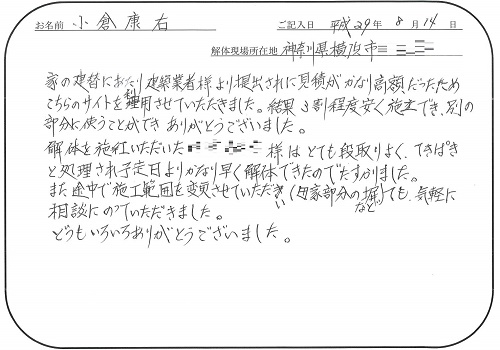 お名前 小倉康右 ご記入日 平成29年8月14日
解体現場所在地 神奈川県横浜市
家の建替にあたり建築業者様より提出された見積がかなり高額だったため
こちらのサイトを利用させていただきました。結果3割程度安く施工でき、別の
部分に使うことができありがとうございました。
解体を施工いただいた 様はとても段取りよく、てきぱき
と処理され予定日よりかなり早く解体できたのでたすかりました。
また途中で施工範囲を変更させていただき、(旧家部分の堀)など ても、気軽に
相談にのっていただきました。
どうもいろいろありがとうございました。